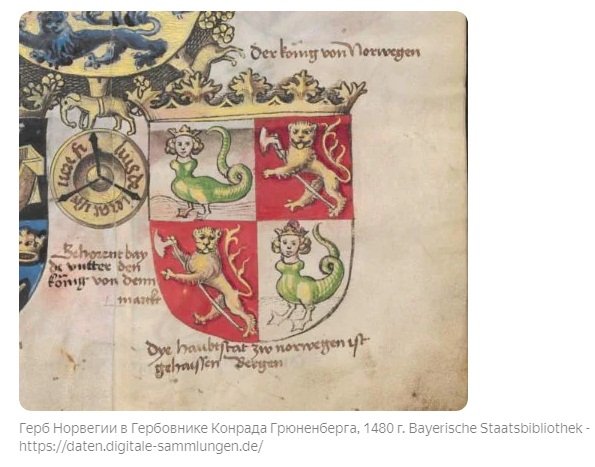 Der könig von Norwegen
Gehorent bay
de vntter den
könig von denn
marckt
Dye haubtstat zw norwegen ist
gehaissen Bergen
Герб Норвегии в Гербовнике Конрада Грюненберга, 1480 г. Bayerische Staatsbibliothek -
https://daten.digitale-sammlungen.de/